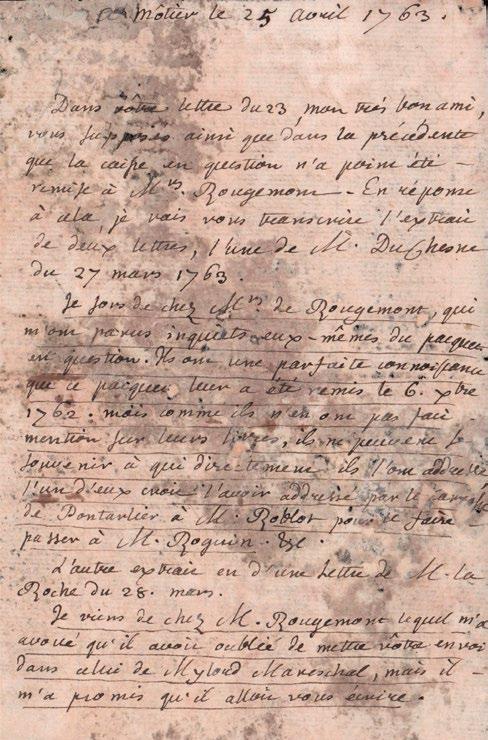 Môtier le 25 avril 1763.
Dans vôtre lettre du 23, mon très bon ami,
vous supposés ainsi que dans la précédente
que la caisse en question n'a point été
remise à Mrs. Rougemont - En réponse
à cela, je vais vous transcrire l'extrait
de deux lettres, l'une de M. DuChesne
du 27 mars 1763.
Je sors de chez Mrs. de Rougemont, qui
m'ont parus inquiets eux-mêmes du pacquet
en question. Ils ont une parfaite connoissance
que ce pacquet leur a été remis le 6. xbre
1762. mais comme ils n'en ont pas fait
mention sur leurs livres, ils ne peuvent se
souvenir à qui directement ils l'ont addressé
l'un d'eux croit l'avoir addressé par le carosse
de Pontarlier à M. Roblot pour le faire
passer à M. Roguin. &c.
L'autre extrait est d'une lettre de M. la
Roche du 28. mars.
Je viens de chez M. Rougemont lequel m'a
avoué qu'il avoit oublié de mettre vôtre envoi
dans celui de Mylord Mareschal, mais il
m'a promis qu'il alloit vous écrire.